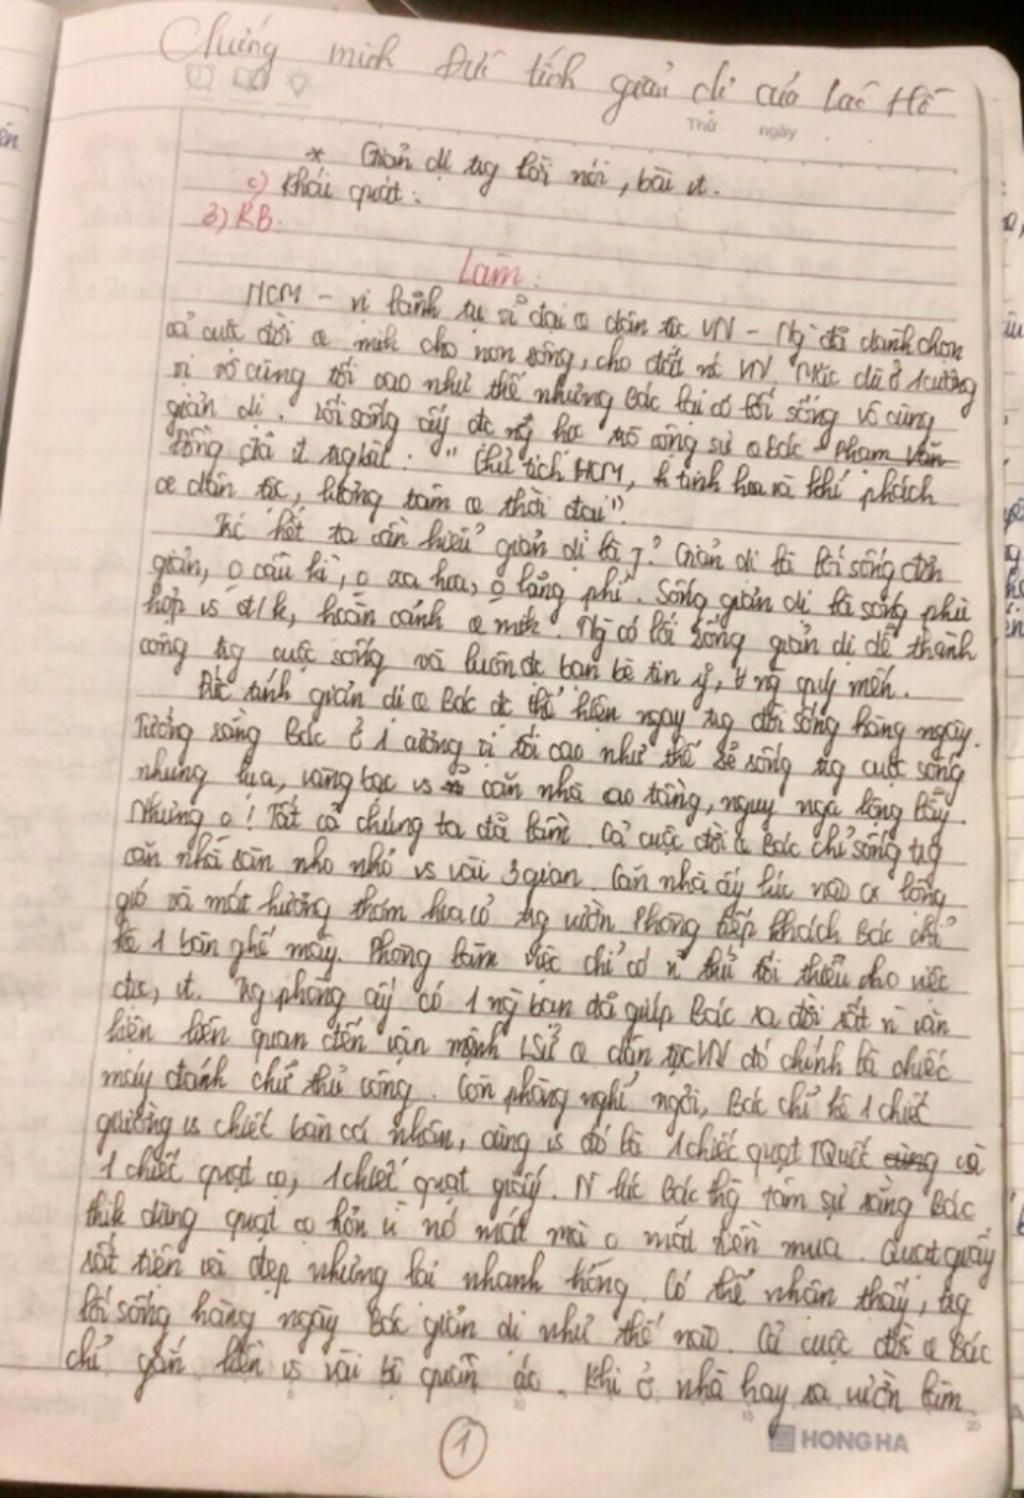 Chứng minh Đức tính giản dị của Bác Hồ
Thứ ngày
* Giản dị tg lời nói, bài vt.
c) Khái quát:
3) KB.
Làm:
HCM - vị lãnh tụ vĩ đại @ dân tộc VN - Ng` đã dành chọn
cả cuộc đời @ mình cho non sông, cho đất nc VN. Mặc dù ở 1 cương
vị vô cùng tối cao như thế nhưng Bác lại có lối sống vô cùng
giản dị. Lối sống ấy đc ng` học trò cộng sự @ Bác - Phạm Văn
Đồng đã vt tg bài: "Chủ tịch HCM, tinh hoa và khí phách
@ dân tộc, lương tâm @ thời đại".
Trc hết ta cần hiểu giản dị là j? Giản dị là lối sống đơn
giản, o cầu kì, o xa hoa, o lãng phí. Sống giản dị là sống phù
hợp vs đ/k, hoàn cảnh @ mình. Ng` có lối sống giản dị dễ thành
công tg cuộc sống và luôn đc bạn bè tin y, ng` quý mến.
Đức tính giản dị @ Bác đc thể hiện ngay tg đời sống hàng ngày.
Tưởng rằng Bác ở 1 cương vị tối cao như thế sẽ sống tg cuộc sống
nhung lụa, vàng bạc vs căn nhà cao tầng, nguy nga lộng lẫy.
Nhưng o! Tất cả chúng ta đã lầm. Cả cuộc đời @ Bác chỉ sống tg
căn nhà sàn nho nhỏ vs vài 3 gian. Căn nhà ấy lúc nào cx lộng
gió và mát hương thơm hoa cỏ tg vườn. Phòng tiếp khách Bác chỉ
kê 1 bàn ghế mây. Phòng làm việc chỉ có n~ thứ tối thiểu cho việc
đọc, vt. Tg phòng ấy có 1 ng` bạn đã giúp Bác ra đời rất n` văn
kiện liên quan đến vận mệnh LSử @ dân tộc VN đó chính là chiếc
máy đánh chữ thủ công. Còn phòng nghỉ ngơi, Bác chỉ kê 1 chiếc
giường vs chiếc bàn cá nhân, cùng vs đó là 1 chiếc quạt TQuốc cùng và
1 chiếc quạt cọ, 1 chiếc quạt giấy. N` lúc Bác thg tâm sự rằng Bác
thik dùng quạt cọ hơn vì nó mát mà o mất tiền mua. Quạt giấy
rất tiện và đẹp nhưng lại nhanh hỏng. Có thể nhận thấy, tg
lối sống hàng ngày Bác giản dị như thế nào. Cả cuộc đời @ Bác
chỉ gắn liền vs vài bộ quần áo. Khi ở nhà hay ra vườn làm
1
HONG HA